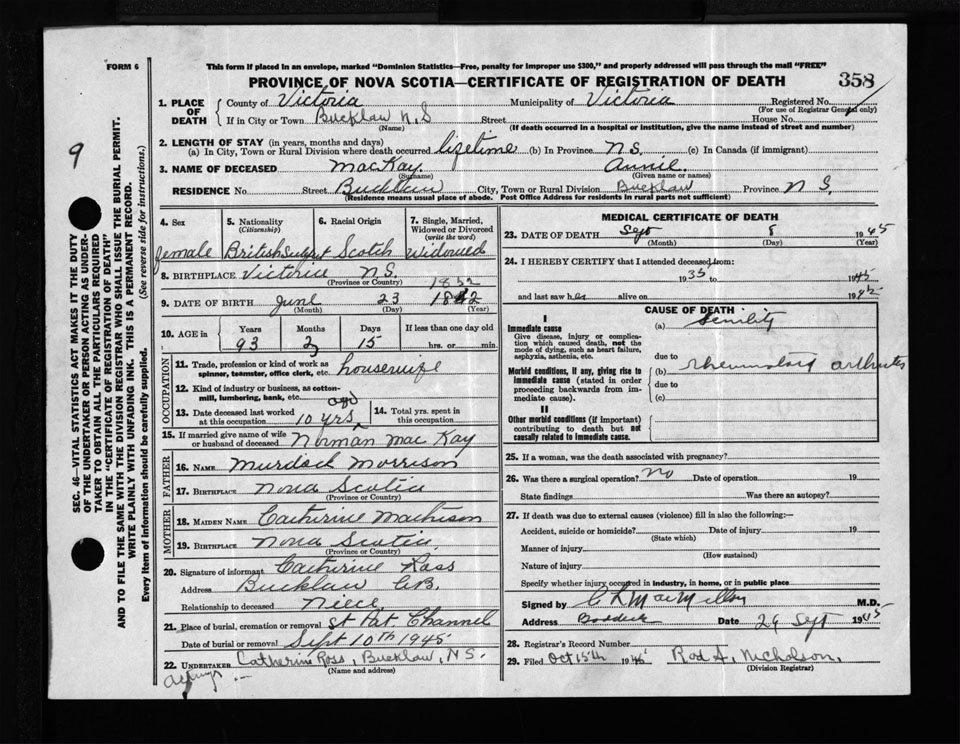 FORM 6
This form if placed in an envelope, marked "Dominion Statistics—Free, penalty for improper use $300," and properly addressed will pass through the mail "FREE"
PROVINCE OF NOVA SCOTIA—CERTIFICATE OF REGISTRATION OF DEATH
358
9
SEC. 46—VITAL STATISTICS ACT MAKES IT THE DUTY
OF THE UNDERTAKER OR PERSON ACTING AS UNDER-
TAKER TO OBTAIN ALL THE PARTICULARS REQUIRED
IN THE "CERTIFICATE OF REGISTRATION OF DEATH"
AND TO FILE THE SAME WITH THE DIVISION REGISTRAR WHO SHALL ISSUE THE BURIAL PERMIT.
WRITE PLAINLY WITH UNFADING INK. THIS IS A PERMANENT RECORD.
Every item of information should be carefully supplied. (See reverse side for instructions.)
1. PLACE OF DEATH County of Victoria Municipality of Victoria Registered No.
(For use of Registrar General only)
If in City or Town Bucklaw N.S Street House No.
(Name) (If death occurred in a hospital or institution, give the name instead of street and number)
2. LENGTH OF STAY (in years, months and days)
(a) In City, Town or Rural Division where death occurred lifetime (b) In Province N.S. (c) In Canada (if immigrant)
3. NAME OF DECEASED MacKay Annie.
(Surname) (Given name or names)
RESIDENCE No Street Bucklaw City, Town or Rural Division Bucklaw Province N S,
(Residence means usual place of abode. Post Office Address for residents in rural parts not sufficient)
4. Sex
female
5. Nationality
(Citizenship)
British Subject
6. Racial Origin
Scotch
7. Single, Married, Widowed or Divorced
(write the word)
Widowed
8. BIRTHPLACE Victoria N.S.
(Province or Country)
1852
9. DATE OF BIRTH June 23 1842
(Month) (Day) (Year)
10. AGE in Years Months Days If less than one day old
93 2 15 hrs. or min.
OCCUPATION
11. Trade, profession or kind of work as spinner, teamster, office clerk, etc. housewife
12. Kind of industry or business, as cotton-mill, lumbering, bank, etc.
13. Date deceased last worked at this occupation 10 yrs ago
14. Total yrs. spent in this occupation
15. If married give name of wife or husband of deceased Norman Mac Kay
FATHER
16. NAME Murdoch Morrison
17. BIRTHPLACE Nova Scotia
(Province or Country)
MOTHER
18. MAIDEN NAME Catherine Mathison
19. BIRTHPLACE Nova Scotia
(Province or Country)
20. Signature of informant Catherine Ross
Address Bucklaw C.B.
Relationship to deceased Niece
21. Place of burial, cremation or removal St Pat. Channel
Date of burial or removal Sept 10th 1945
22. UNDERTAKER Catherine Ross, Bucklaw, N.S.
(Name and address)
MEDICAL CERTIFICATE OF DEATH
23. DATE OF DEATH Sept 8 1945
(Month) (Day) (Year)
24. I HEREBY CERTIFY that I attended deceased from:
1935 to 1945
and last saw her alive on 1945
CAUSE OF DEATH
I
Immediate cause
Give disease, injury or complication which caused death, not the mode of dying, such as heart failure, asphyxia, asthenia, etc.
(a) Senility
due to
Morbid conditions, if any, giving rise to immediate cause (stated in order proceeding backwards from immediate cause).
(b) rheumatoid arthritis
due to
(c)
II
Other morbid conditions (if important) contributing to death but not causally related to immediate cause.
25. If a woman, was the death associated with pregnancy?
26. Was there a surgical operation? no Date of operation 19
State findings Was there an autopsy?
27. If death was due to external causes (violence) fill in also the following:—
Accident, suicide or homicide? Date of injury 19
(State which)
Manner of injury
(How sustained)
Nature of injury
Specify whether injury occurred in industry, in home, or in public place
Signed by C L MacMillan M.D.
Address Baddeck Date 29 Sept 1945
28. Registrar's Record Number
29. Filed Oct 15th 1945 Rod A. Nicholson.
(Division Registrar)